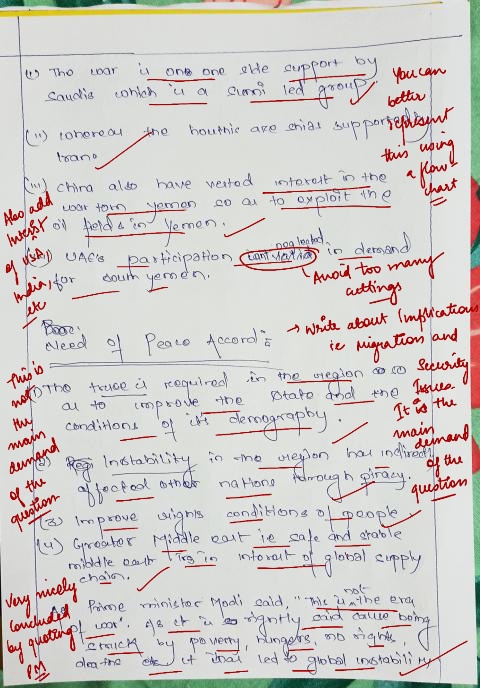 (i) The war is one one side support by
Saudis which is a Sunni led group.
(ii) whereas the houthis are shias supported by
Iran.
(iii) China also have vested interest in the
war torn yemen so as to exploit the
oil fields in Yemen.
UAE's participation can't neglected in demand
for south yemen.
You can
better
represent
this using
a flow-
chart
Also add
Interest
of USA,
India,
etc
Avoid too many
cuttings
Need of Peace Accord:
→ Write about Implications
ie Migration and
Security
Issues
It is the
main
demand
of the
question
This is
not
the
main
demand
of the
question
(1) The truce is required in the region so
as to improve the state and the
conditions of its demography.
(2) Instability in the region has indirectly
affected other nations through piracy.
(3) Improve rights conditions of people
(4) Greater Middle east ie safe and stable
middle east lies in interest of global supply
chain.
As Prime minister Modi said, "This is not the era
of war". As it is so rightly said cause being
struck by poverty, hungers, no rights,
deaths etc it had led to global instability
Very nicely
concluded
by quoting
PM